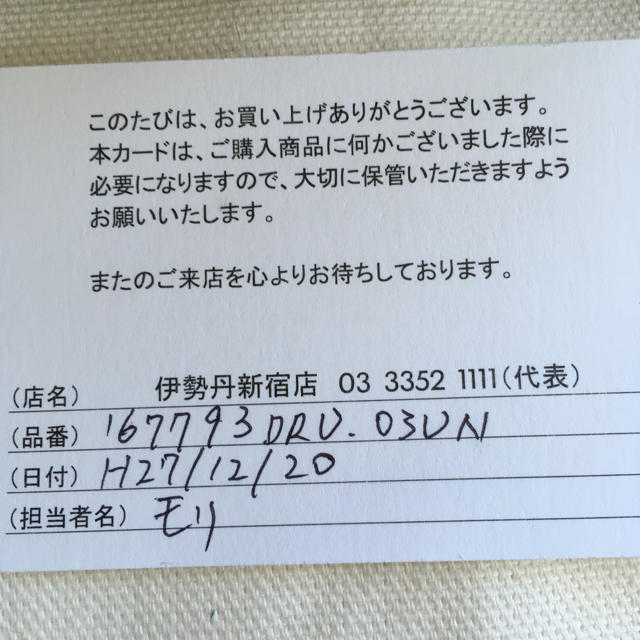 このたびは、お買い上げありがとうございます。
本カードは、ご購入商品に何かございました際に
必要になりますので、大切に保管いただきますよう
お願いいたします。
またのご来店を心よりお待ちしております。
(店名) 伊勢丹新宿店 03 3352 1111(代表)
(品番) 167793DRU.03UN
(日付) H27/12/20
(担当者名) モリ